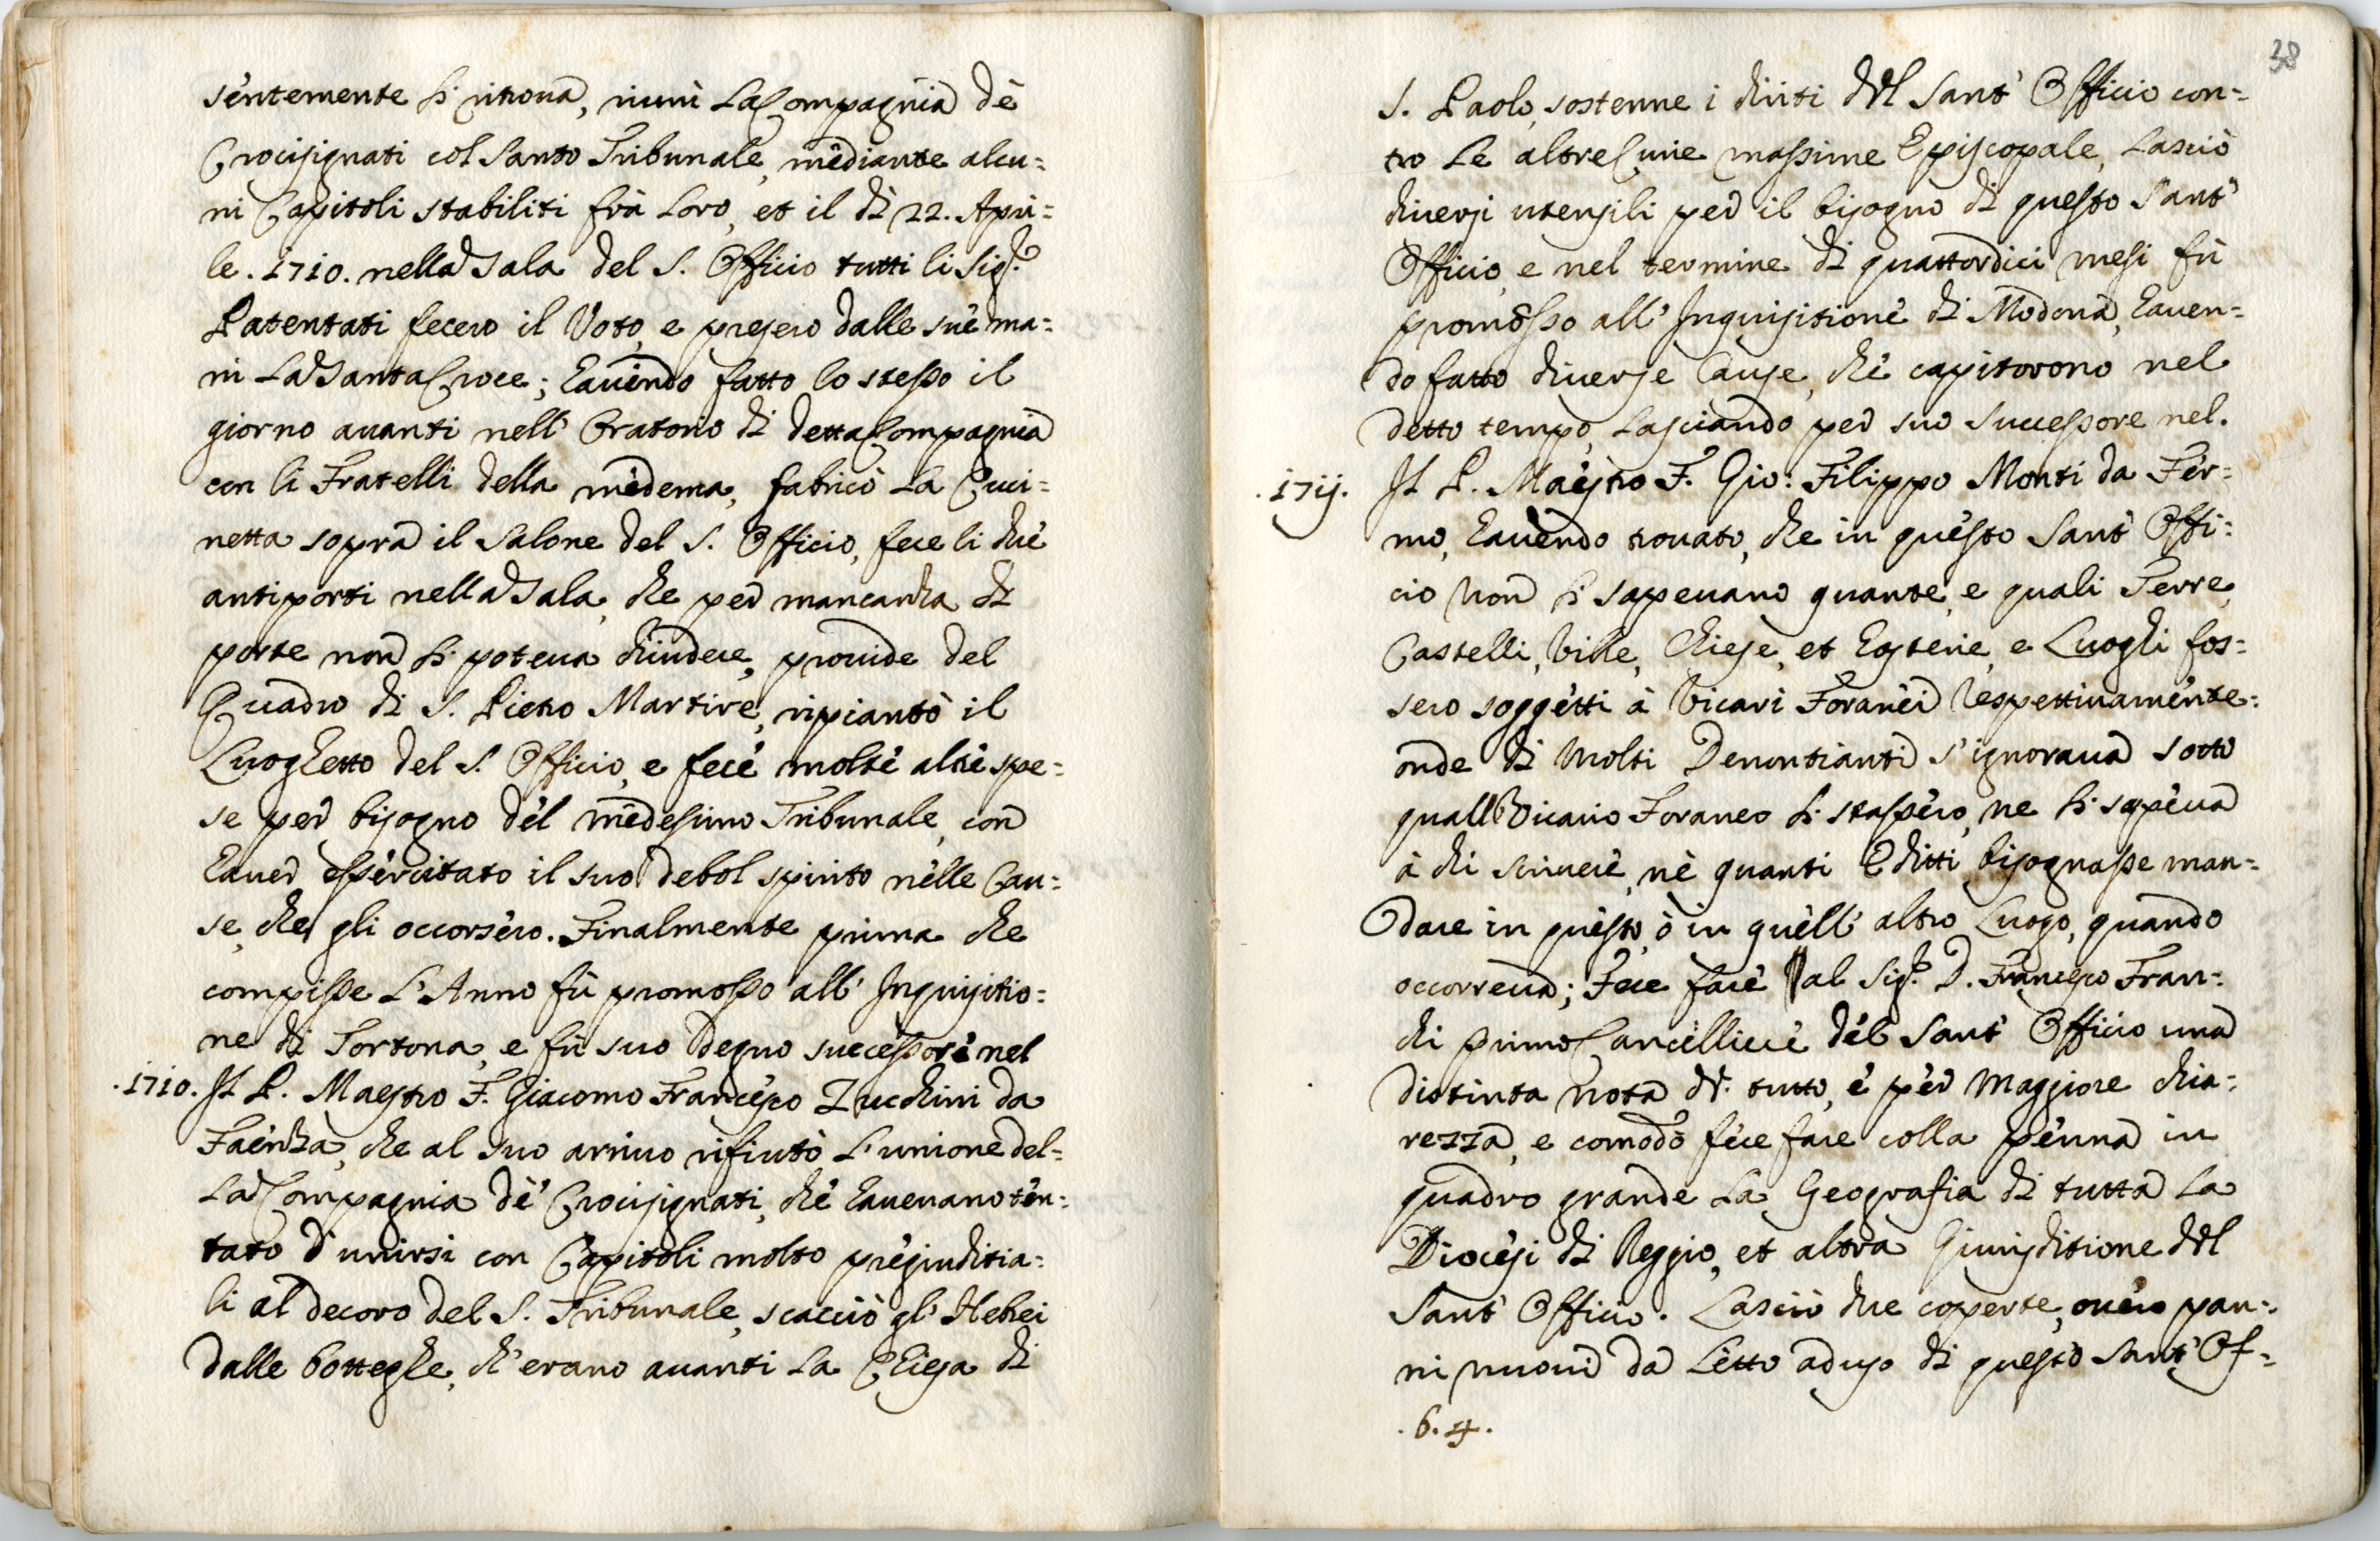 sentemente si ritrova, riunì La Compagnia dè
Crocisignati col Santo Tribunale, mediante alcu=
ni Capitoli stabiliti frà Loro, et il dì 22. Apri=
le .1710. nella Sala del S. Officio tutti li Sig.ri
Patentati fecero il Voto, e presero dalle sue ma=
ni La Santa Croce; havendo fatto lo stesso il
giorno avanti nell' Oratorio di detta Compagnia
con li Fratelli della medema, fabricò La Cuci=
netta sopra il Salone del S. Officio, fece li due
antiporti nella Sala, che per mancanza di
porte non si poteva chiudere, provide del
Quadro di S. Pietro Martire, ripiantò il
Luoghetto del S. Officio, e fece molte altre spe=
se per bisogno del medesimo Tribunale, con
haver essercitato il suo debol spirito nelle Cau=
se, che gli occorsero. Finalmente prima che
compisse L'Anno fù promosso all' Inquisitio=
ne di Tortona, e fù suo degno successore nel
.1710. Il P. Maestro F. Giacomo Francesco Zucchini da
Faenza, che al suo arrivo rifiutò L'unione del=
La Compagnia de' Crocisignati, che havevano ten=
tato d'unirsi con Capitoli molto pregiuditia=
li al decoro del S. Tribunale, scacciò gl' Hebrei
dalle botteghe, ch'erano avanti La Chiesa di
38
S. Paolo, sostenne i diriti del Sant' Officio con=
tro Le altre Curie massime Episcopale, Lasciò
diversi utensili per il bisogno di questo Sant'
Officio, e nel termine di quattordici mesi fù
promosso all' Inquisitione di Modona, haven=
do fatto diverse Cause, che capitorono nel
detto tempo, Lasciando per suo Successore nel.
.1711. Il P. Maestro F. Gio: Filippo Monti da Fer=
mo, havendo trovato, che in questo Sant' Offi=
cio non si sapevano quante, e quali Terre,
Castelli, Ville, Chiese, et hosterie, e Luoghi fos=
sero soggetti à Vicari Foranei respettivamente:
onde di molti Denontianti s'ignorava sotto
qual Vicario Foraneo si stassero, ne si sapeva
à chi scrivere, nè quanti Editti bisognasse man=
dare in questo, ò in quell' altro Luogo, quando
occorreva; Fece fare al Sig.r D. Francesco Fran=
chi primo Cancelliere del Sant' Officio una
distinta nota del tutto, e per maggiore chia=
rezza, e comodo fece fare colla penna in
quadro grande La Geografia di tutta La
Diocesi di Reggio, et altra Giurisditione del
Sant' Officio. Lasciò due coperte, overo pan=
ni nuovi da Letto ad uso di questo Sant' Of=
.6.4.